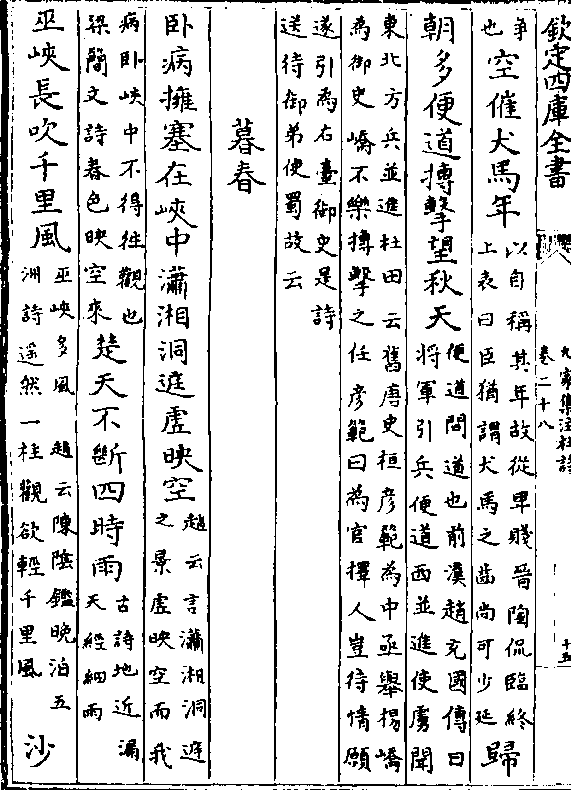 欽定四庫全書
九家集注杜詩
卷二十八
十五
爭
也
空催犬馬年
以自稱其年故從卑賤晉陶侃臨終
上表曰臣猶謂犬馬之齒尚可少延
歸
朝多便道搏擊望秋天
便道間道也前漢趙充國傳曰
將軍引兵便道西並進使虜聞
東北方兵並進杜田云舊唐史桓彥範為中丞舉楊嶠
為御史嶠不樂搏擊之任彥範曰為官擇人豈待情願
遂引為右臺御史是詩
送待御弟使蜀故云
暮春
卧病擁塞在峽中瀟湘洞庭虛映空
趙云言瀟湘洞庭
之景虛映空而我
病卧峽中不得往觀也
梁簡文詩春色映空來
楚天不斷四時雨
古詩地近漏
天經細雨
巫峽長吹千里風
巫峽多風趙云陳陰鑑晚泊五
洲詩遥然一柱觀欲輕千里風
沙